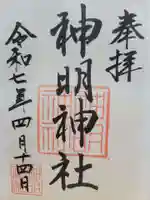 奉拝
神明神社
令和七年四月十四日